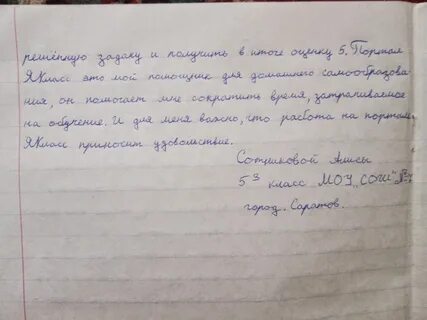 решённую задачу и получить в итоге оценку 5. Портал
ЯКласс это мой помощник для домашнего самообразова
ния, он помогает мне сократить время, затрачиваемое
на обучение. И для меня важно, что работа на портале
ЯКласс приносит удовольствие.
Сотниковой
5З класс МОУ „СОШ"
город. Саратов.